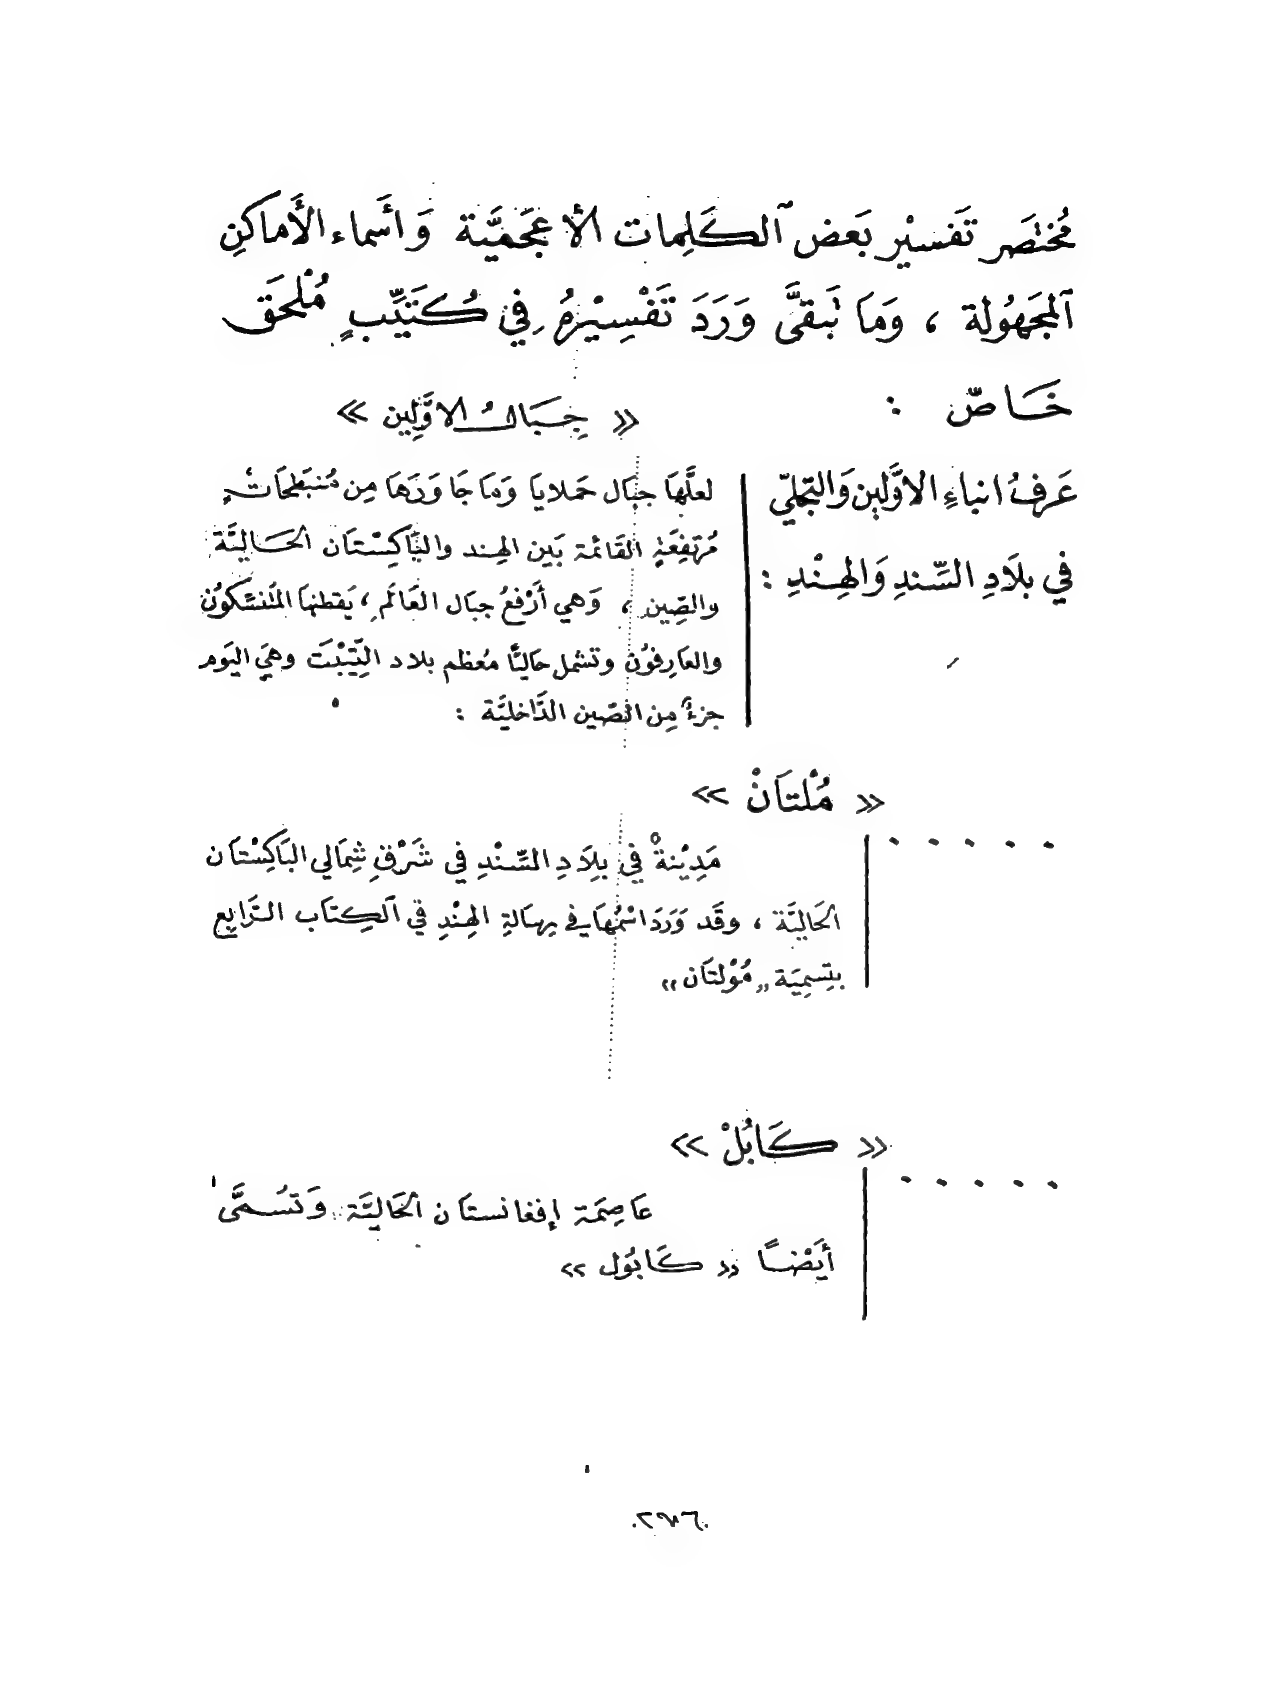 مُختصَر تَفسيْر بَعض ٱلكَلِمات الأعجَميَّة وَأسَماء الأَماكنِ
ٱلمجَهُولة ، وَمَا تَبقىَّ وَرَدَ تَفْسِيْرهُ فِي كُتَيِّبٍ مُلْحَق
خَاصّ :
« جِبَالُ الاوَّلِين »
عَرفُ انباءِ الاوَّلين وَالتجَليّ
في بلَادِ السّندِ وَالهِنْدِ :
لعلَّهَا جبَال حَملايَا وَمَا جَاوَرَهَا مِن مُنبَطحَاتٍ
مُرتفِعَةٍ القَائمة بَين الهِند والبَاكِسْتَان الحَاليَّة
والصِّين ، وَهي أَرْفعُ جبَال العَالَم ، يَقطنهَا المُتَنسّكوُن
والعَارِفوُن وتشمل حَاليًّا مُعظم بلاد التِّيْبْت وهيَ اليَوم
جزءٌ مِن الصّين الدَّاخليَّة :
« مُلْتَانْ »
مَدِيْنةٌ في بِلَادِ السِّنْدِ في شَرْقِ شِمَالي البَاكِسْتَان
الحَاليَّة ، وقَد وَرَدَ اسْمُهَا في رسَالةِ الهِنْدِ في ٱلكِتَاب الرَّابع
بتِسمِيَة „مُوْلتَان„
« كَابُلْ »
عَاصِمَة إفغانستَان الحَاليَّة وَتسُمىَّ
أَيَضْاً « كَابوُل »
٢٧٦